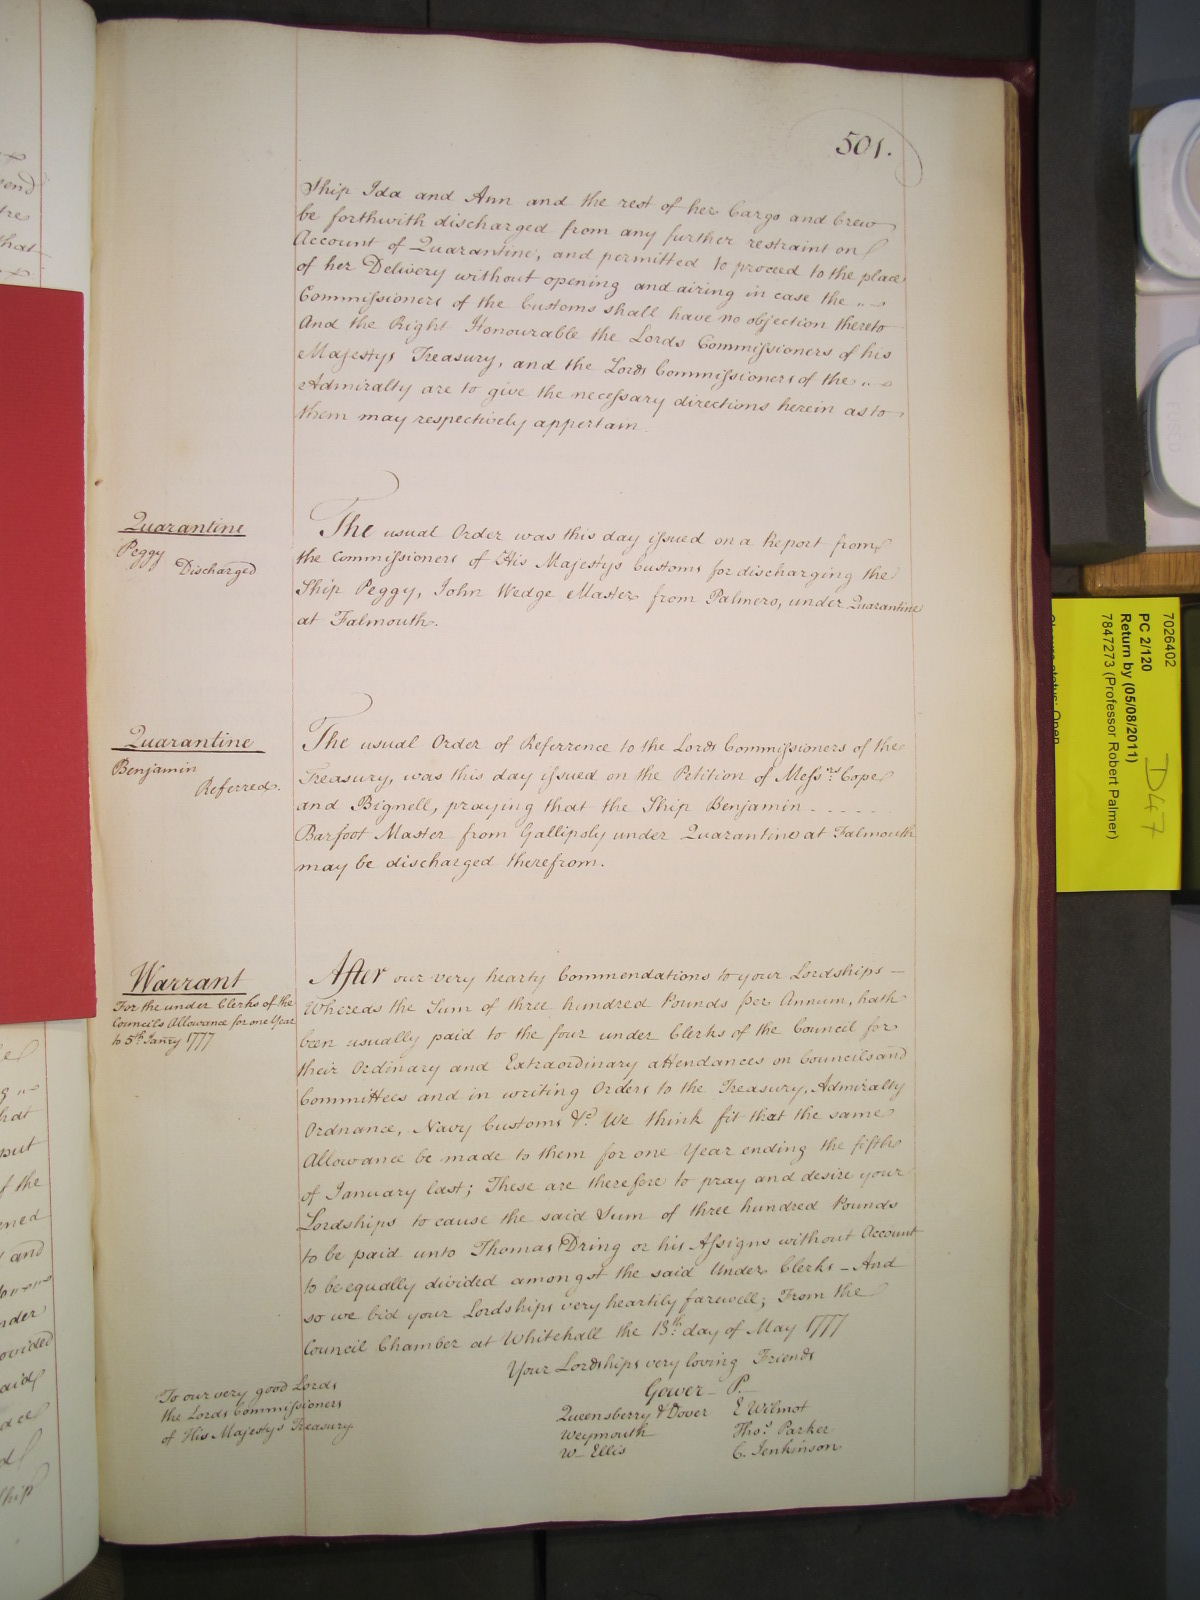 501.
Ship Ida and Ann and the rest of her Cargo and Crew
be forthwith discharged from any further restraint on
Account of Quarantine, and permitted to proceed to the place
of her Delivery without opening and airing in case the
Commissioners of the Customs shall have no objection thereto
And the Right Honourable the Lords Commissioners of his
Majestys Treasury, and the Lords Commissioners of the
Admiralty are to give the necessary directions herein as to
them may respectively appertain.
Quarantine
Peggy
Discharged
The usual Order was this day issued on a Report from
the Commissioners of His Majestys Customs for discharging the
Ship Peggy, John Wedge Master from Palmero, under Quarantine
at Falmouth.
Quarantine
Benjamin
Referred.
The usual Order of Referrence to the Lords Commissioners of the
Treasury, was this day issued on the Petition of Messrs. Cope
and Bignell, praying that the Ship Benjamin - - - - -
Barfoot Master from Gallipoly under Quarantine at Falmouth
may be discharged therefrom.
Warrant
For the under Clerks of the
Councils Allowance for one Year
to 5th. Janry 1777
After our very hearty Commendations to your Lordships —
Whereas the Sum of three hundred Pounds per Annum, hath
been usually paid to the four under Clerks of the Council for
their Ordinary and Extraordinary attendances on Councils and
Committees and in writing Orders to the Treasury, Admiralty
Ordnance, Navy Customs &c. We think fit that the same
Allowance be made to them for one Year ending the fifth
of January last; These are therefore to pray and desire your
Lordships to cause the said Sum of three hundred Pounds
to be paid unto Thomas Dring or his Assigns without Account
to be equally divided amongst the said Under Clerks - And
so we bid your Lordships very heartily farewell; From the
Council Chamber at Whitehall the 13th. day of May 1777
Your Lordships very loving Friends
Gower P.
Queensberry & Dover E Wilmot
Weymouth Thos. Parker
W Ellis C. Jenkinson
To our very good Lords
the Lords Commissioners
of His Majestys Treasury
7026402
PC 2/120
Return by (05/08/2011)
7847273 (Professor Robert Palmer)
D47